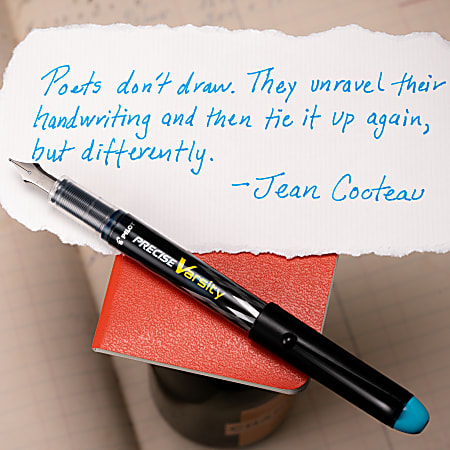 Poets don't draw. They unravel their
handwriting and then tie it up again,
but differently.
-Jean Cocteau
PILOT
PRECISE Varsity